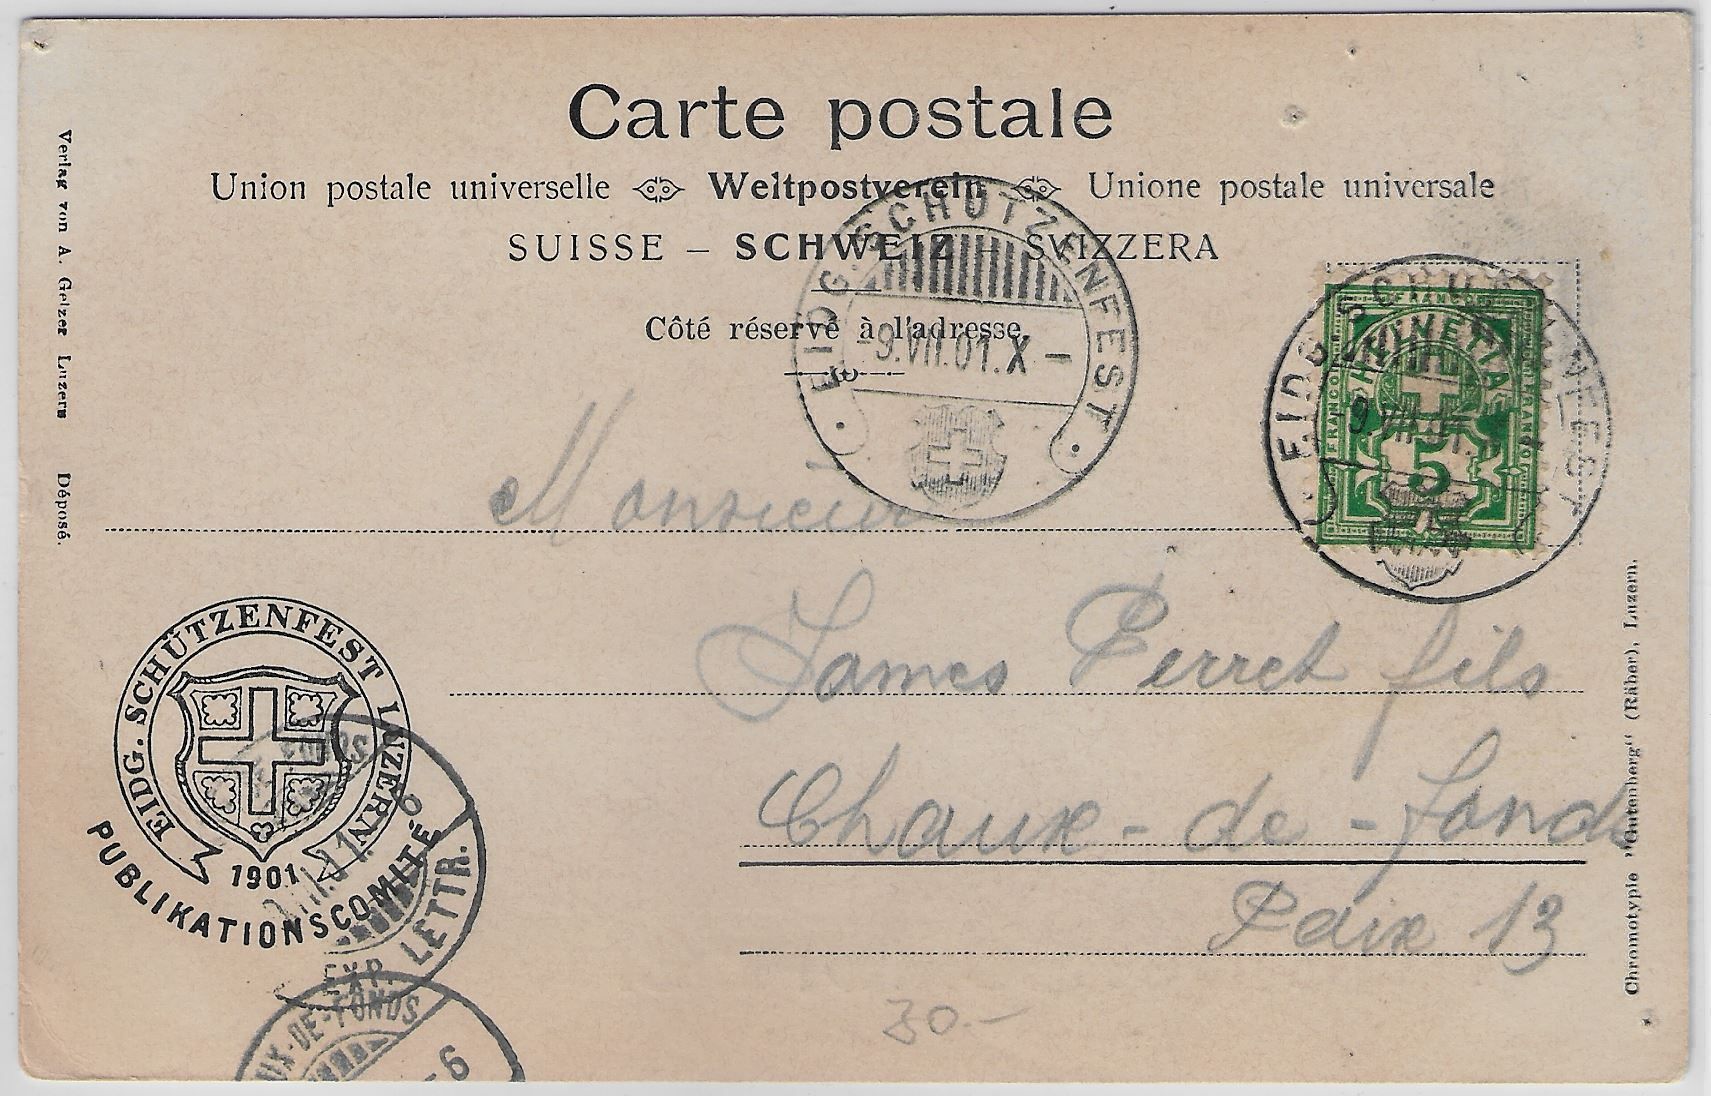 Carte postale
Union postale universelle Weltpostverein Unione postale universale
SUISSE – SCHWEIZ – SVIZZERA
Côté réservé à l'adresse.
EIDG. SCHÜTZENFEST
-9.VII.01.X-
EIDG. SCHÜTZENFEST
9.VII.01.
FRANCO
HELVETIA
FRANCO
5
Monsieur
James Perret fils
Chaux-de-fonds
Paix 13
30.-
EIDG. SCHÜTZENFEST LUZERN
1901
PUBLIKATIONSCOMITÉ
EXP. LETTR.
UX-DE-FONDS
-6
Verlag von A. Gelzer Luzern Déposé.
Chromotypie "Gutenberg" (Räber), Luzern.